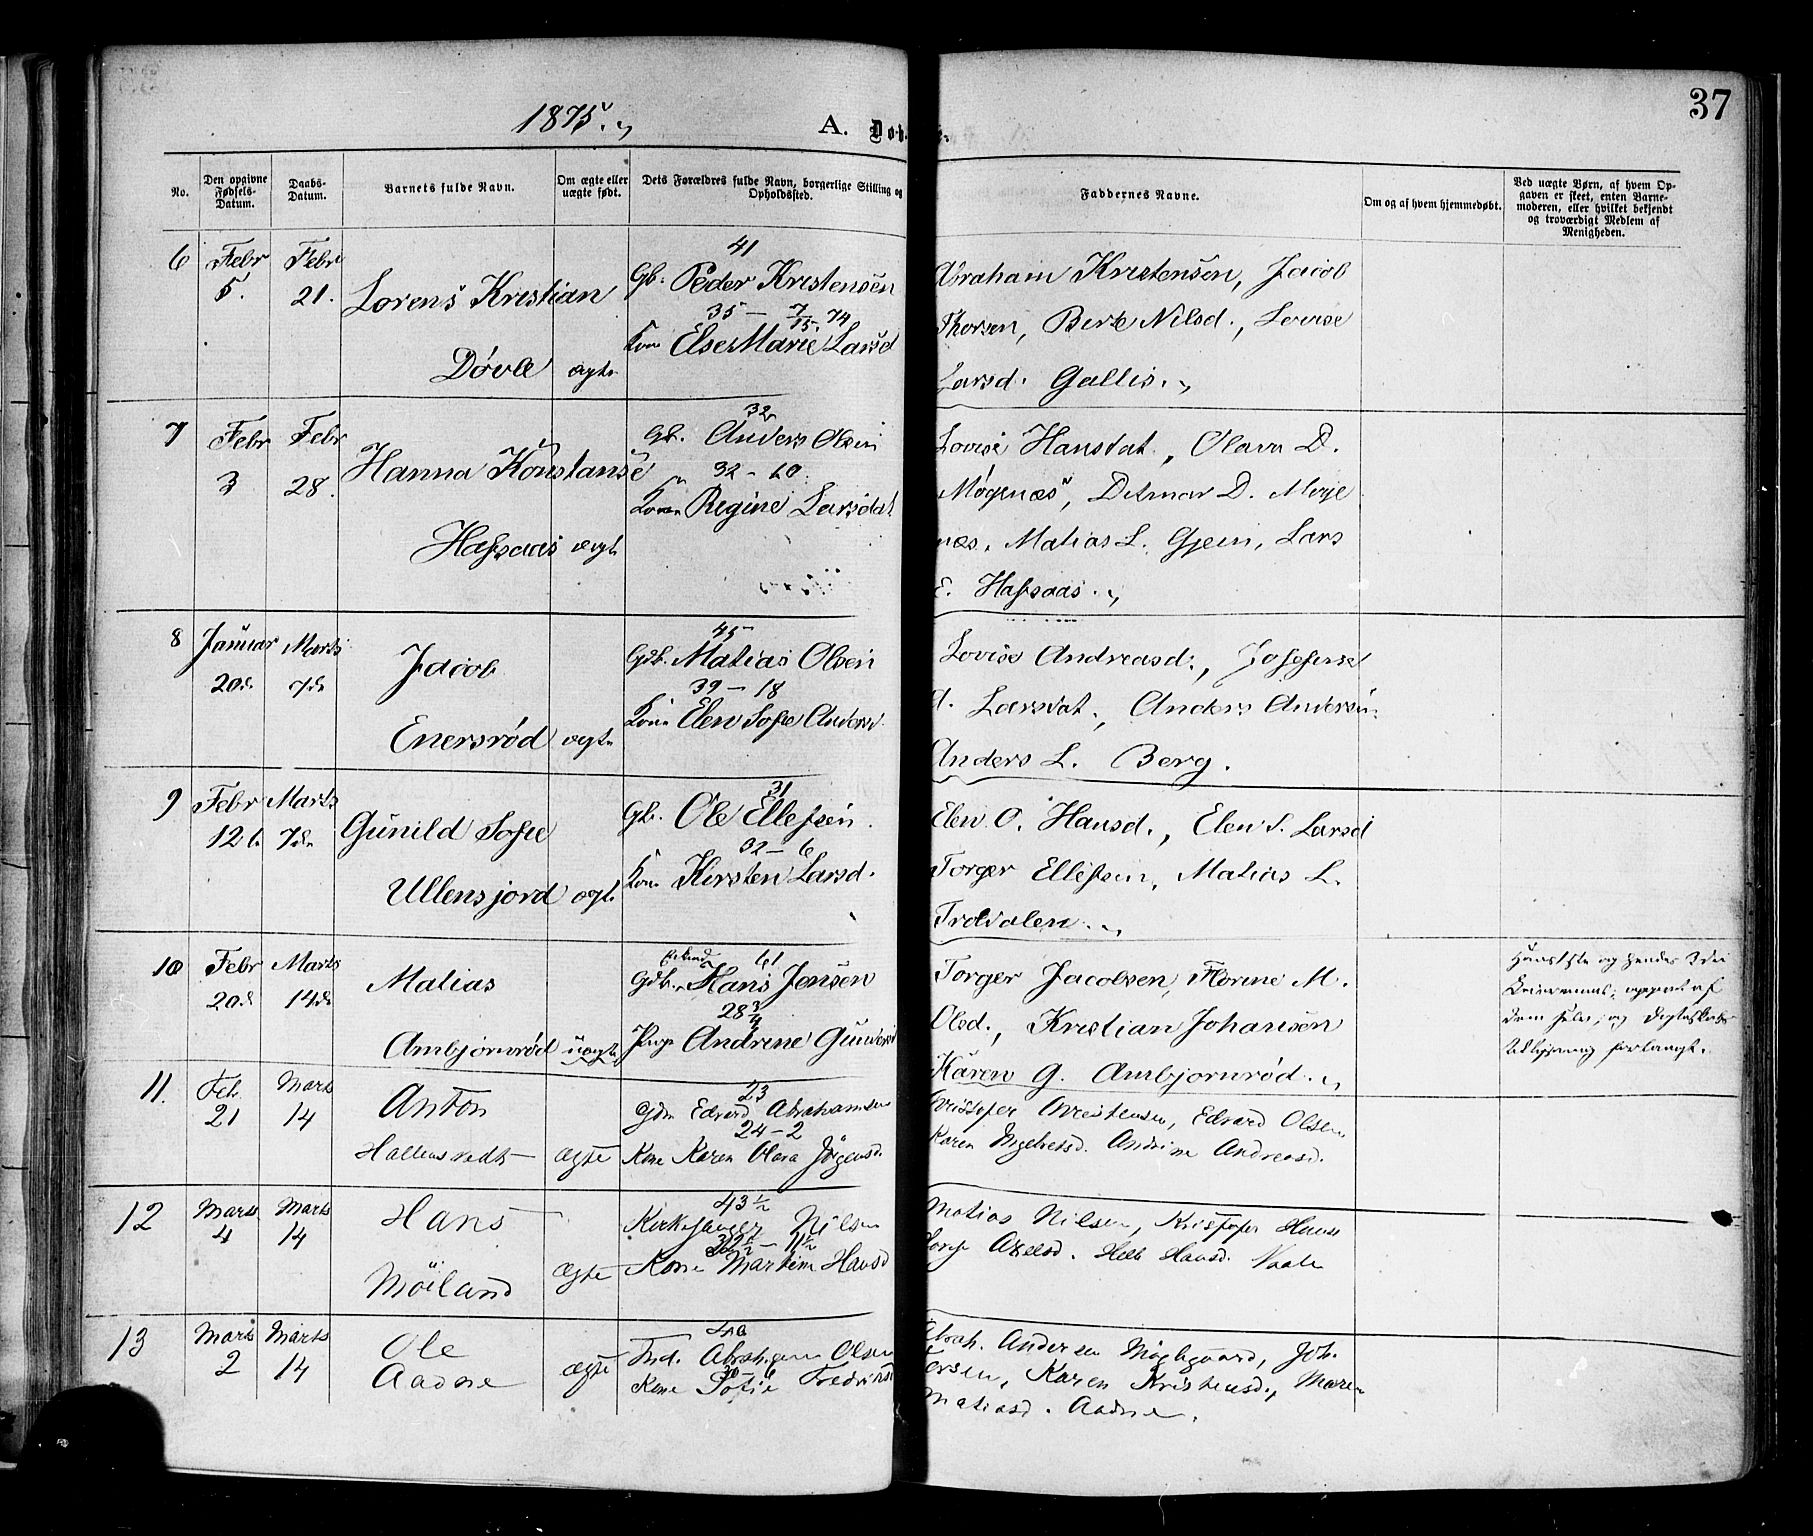 37
1875.
A. Døb
No.
Den opgivne Fødsels-Datum.
Daabs-Datum.
Barnets fulde Navn.
Om ægte eller uægte født.
Dets Forældres fulde Navn, borgerlige Stilling og Opholdssted.
Faddernes Navne.
Om og af hvem hjemmedøbt.
Ved uægte Børn, af hvem Opgaven er skeet, enten Barnemoderen, eller hvilket bekjendt og troværdigt Medlem af Menigheden.
6 Febr 5. Febr 21. Lorens Kristian
Døvle ægte
41
Gb. Peder Kristensen
35 — 7/15. 74
Kone Else Marie Larsd
Abraham Kristensen, Jacob
Thorsen, Berte Nilsd., Lovise
Larsd. Gallis.
7 Febr 3 Febr 28. Hanna Konstanse
Hafsaas ægte
32
Gb. Anders Olsen
32 - 10.
Kone Regine Larsdat
Lovise Hansdat, Olava D.
Møgenæs, Ditmar D. Meje
næs, Matias L. Gjein, Lars
E. Hafsaas.
8 Januar 20de Marts 7de Jacob
Enersrød ægte
45
Gdb. Matias Olsen
39 - 18
Kone Elen Sofie Andersd.
Lovise Andreasd., Josefine
d. Larsdat, Anders Andersen
Anders L. Berg.
9 Febr 12te Marts 7de Gunild Sofie
Ullensjord ægte
31
Gb. Ole Ellefsen.
32 - 6
Kone Kirsten Larsd.
Elen O. Hansd., Elen S. Larsd
Torger Ellefsen, Matias L.
Trolldalen.
10 Febr 20de Marts 14de Matias
Ambjørnrød uægte
61
Gdb. Hans Jensen
28 3/4
Pige Andrine Gunders
Torger Jacobsen, Florine M.
Olsd., Kristian Johansen
Karen G. Ambjørnrød.
11. Feb. 21 Marts 14 Anton
Hallensvedt ægte
23
Gdm Edvard Abrahamsen
24 - 2
Kone Karen Olava Jörgensd.
Kristofer Kristensen, Edvard Olsen
Karen Ingebretsd. Andrine Andreasd.
12 Marts 4 Marts 14 Hans
Möiland ægte
43 1/2
Kirkesanger Nilsen
Kone Martine Hansd
Matias Nilsen, Kristofer Hansen
Axelsd. Helle Hansd. Vaale
13 Marts 2 Marts 14 Ole
Aadne ægte
40
Ind. Abraham Olsen
30 - 6
Kone Sofie Fredriksd
Abrah. Andersen Møglegaard, Joh.
Karen Kristensd., Maren
Matiasd. Aadne.